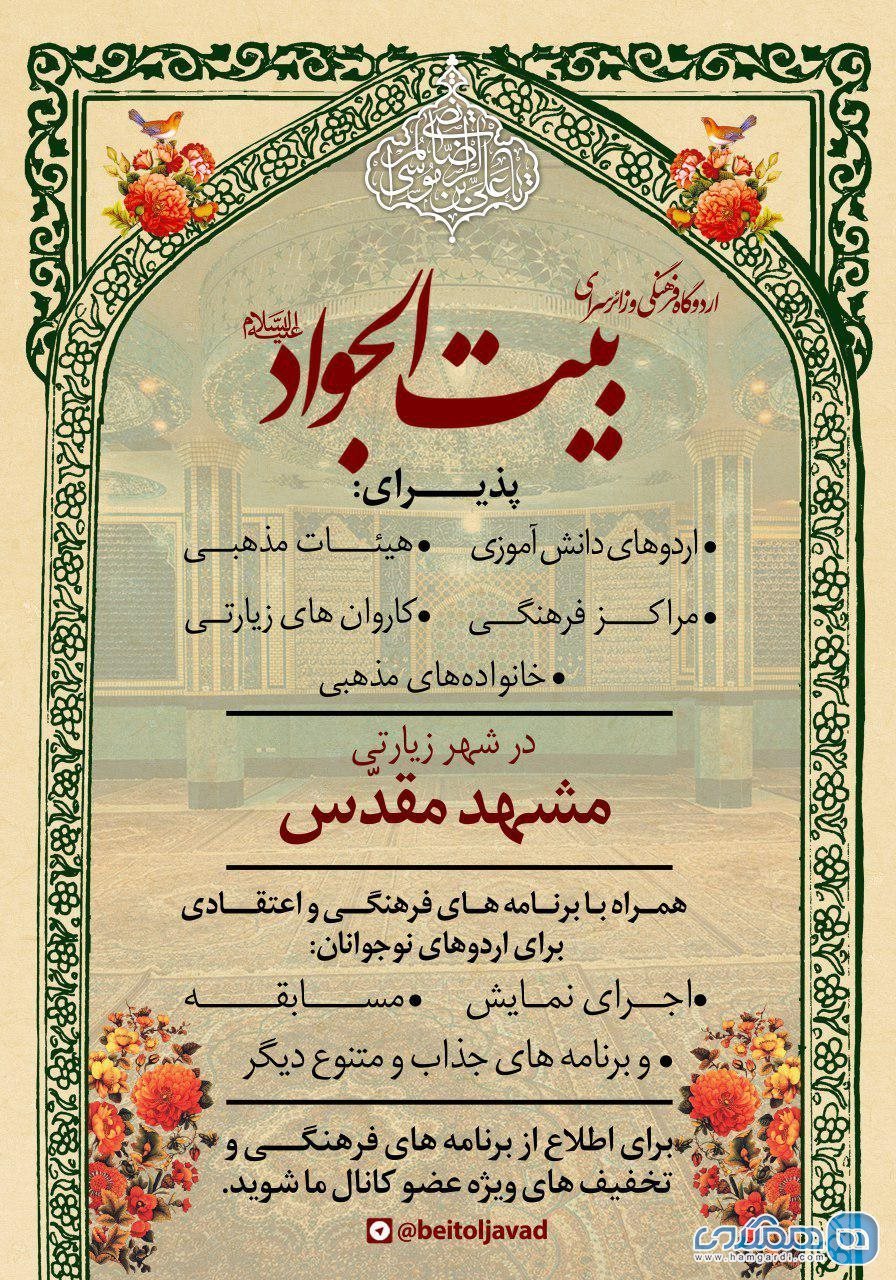 یا علی بن موسی الرضا المرتضی
اردوگاه فرهنگی و زائرسرای
بیت الجواد
علیه السلام
پذیرای:
• اردوهای دانش آموزی • هیئات مذهبی
• مراکز فرهنگی • کاروان های زیارتی
• خانواده‌های مذهبی
در شهر زیارتی
مشهد مقدّس
همراه با برنامه های فرهنگی و اعتقادی
برای اردوهای نوجوانان:
• اجرای نمایش • مسابقه
• و برنامه های جذاب و متنوع دیگر
برای اطلاع از برنامه های فرهنگی و
تخفیف های ویژه عضو کانال ما شوید.
@beitoljavad
همگردی
www.hamgardi.com